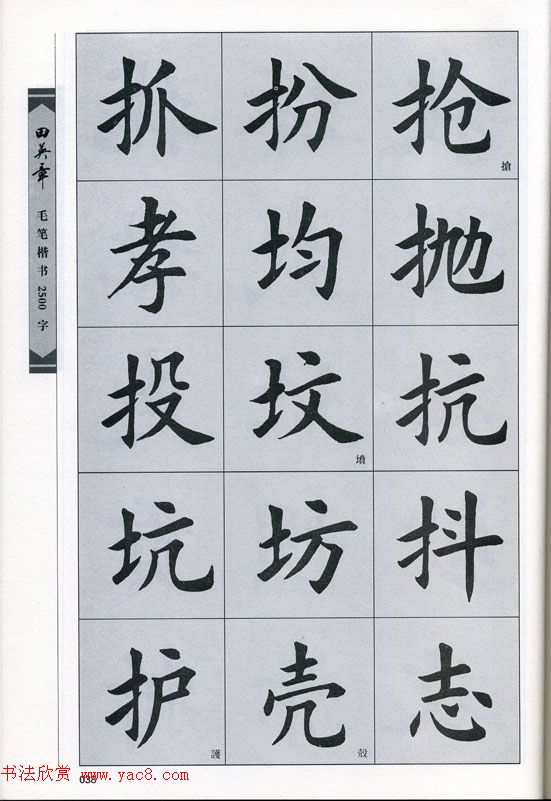 田英章
毛笔楷书2500字
抓 扮 抢 搶
孝 均 抛
投 坟 墳 抗
坑 坊 抖
护 護 壳 殼 志
书法欣赏 www.yac8.com
038